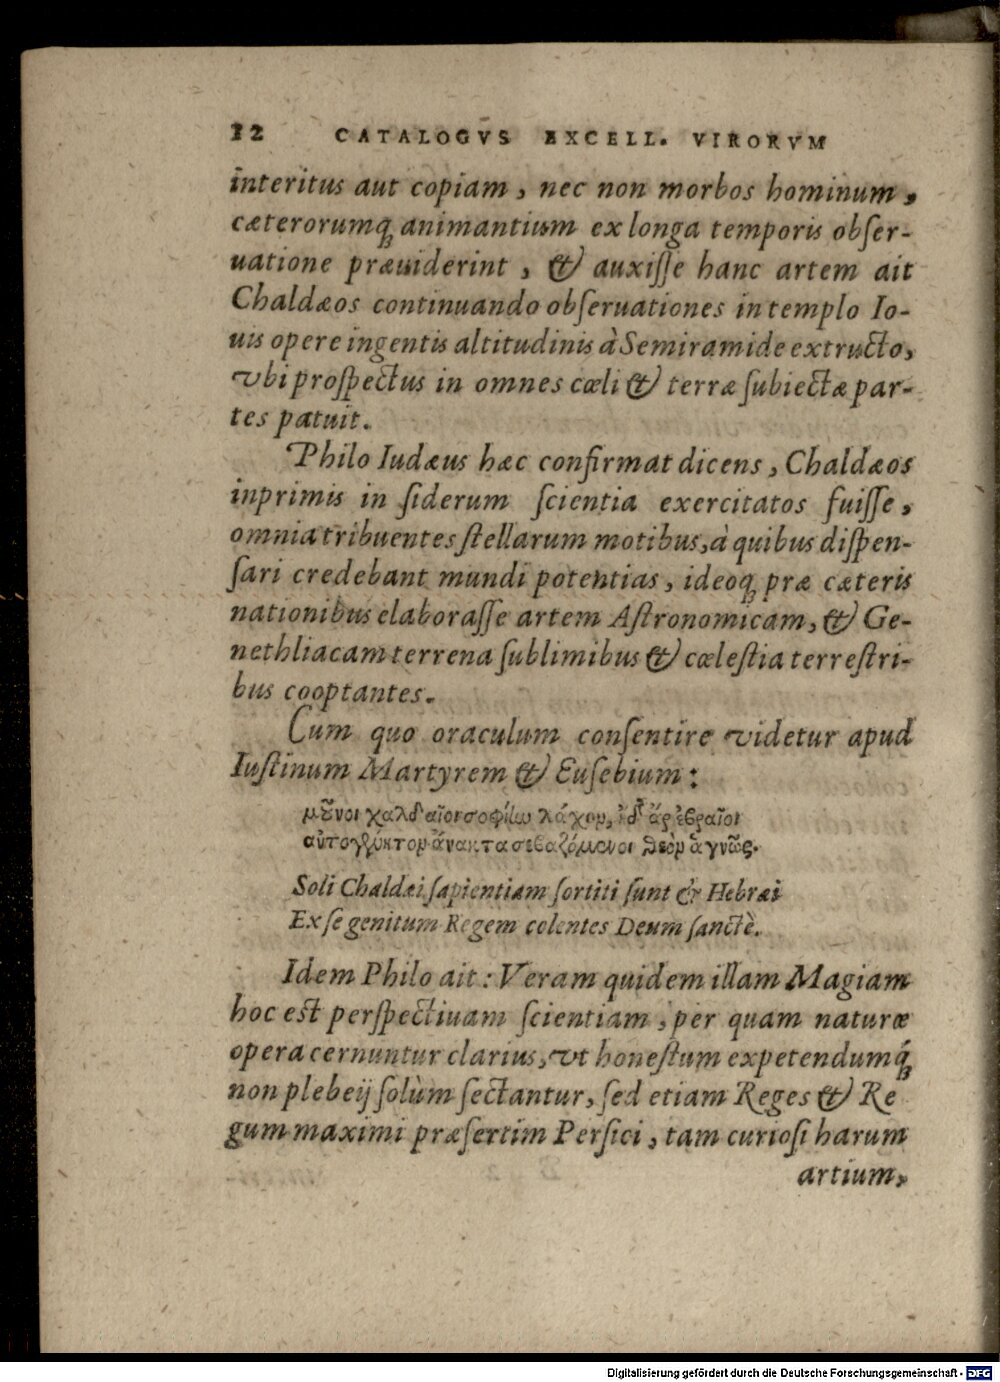 12 CATALOGVS EXCELL. VIRORVM
interitus aut copiam, nec non morbos hominum,
cæterorumq́; animantium ex longa temporis obſer-
uatione præuiderint, & auxiſſe hanc artem ait
Chaldæos continuando obſeruationes in templo Io-
uis opere ingentis altitudinis à Semiramide extructo,
vbi proſpectus in omnes cœli & terræ ſubiectæ par-
tes patuit.
Philo Iudæus hæc confirmat dicens, Chaldæos
inprimis in ſiderum ſcientia exercitatos fuiſſe,
omnia tribuentes ſtellarum motibus, à quibus diſpen-
ſari credebant mundi potentias, ideoq́; præ cæteris
nationibus elaboraſſe artem Aſtronomicam, & Ge-
nethliacam terrena ſublimibus & cœleſtia terreſtri-
bus cooptantes.
Cum quo oraculum conſentire videtur apud
Iuſtinum Martyrem & Euſebium:
μοῦνοι χαλδαῖοι σοφίην λάχον, ἠδ' ἄρ' ἑβραῖοι
αὐτογένητον ἄνακτα σεβαζόμενοι θεὸν ἁγνῶς.
Soli Chaldæi ſapientiam ſortiti ſunt & Hebræi
Ex ſe genitum Regem colentes Deum ſanctè.
Idem Philo ait: Veram quidem illam Magiam
hoc est perſpectiuam ſcientiam, per quam naturæ
opera cernuntur clarius, vt honeſtum expetendumq́;
non plebeij ſolùm ſectantur, ſed etiam Reges & Re
gum maximi præſertim Perſici, tam curioſi harum
artium,
Digitalisierung gefördert durch die Deutsche Forschungsgemeinschaft - DFG